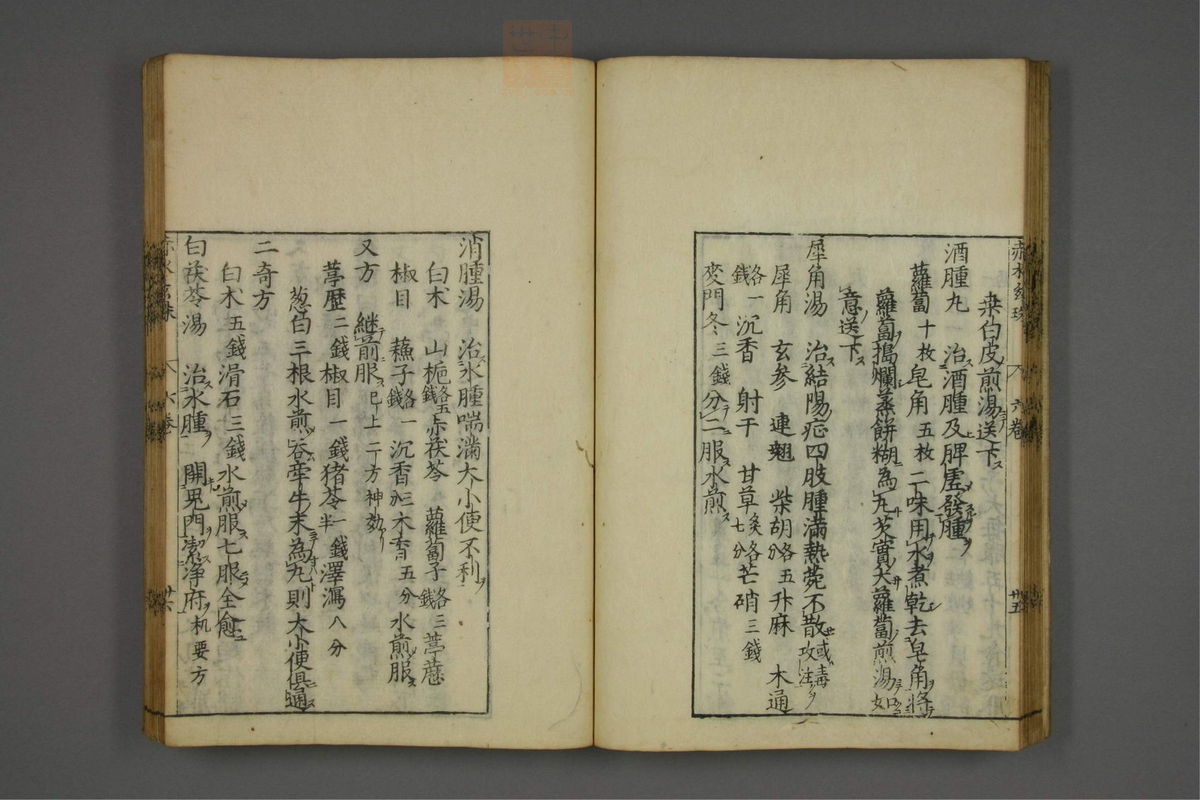 赤水玄珠 六卷 廿五
桒白皮煎湯送下
酒腫丸 治酒腫及脾虚發腫
蘿蔔十枚皂角五枚二味用水煮乾去皂角將
蘿蔔搗爛蒸餅糊為丸芡實大蘿蔔煎湯如
意送下
犀角湯 治結陽症四肢腫滿熱菀不散或毒攻注
犀角 玄參 連翹 柴胡各五分升麻 木通
各一錢沉香 射干 甘草各七分芒硝三錢
麥門冬三錢分二服水煎
消腫湯 治水腫喘滿大小便不利
白术 山梔各五錢赤茯苓 蘿蔔子各三錢葶藶
椒目 蘓子各一錢沉香三分木香五分水煎服
又方 継前服已上二方神効
葶歴二錢椒目一錢猪苓一錢半澤瀉八分
葱白三根水煎吞牽牛末為丸則大小便俱通
二奇方
白术五錢滑石三錢水煎服七服全愈
白茯苓湯 治水腫 開鬼門潔淨府机要方
赤水玄珠 六卷 廿六